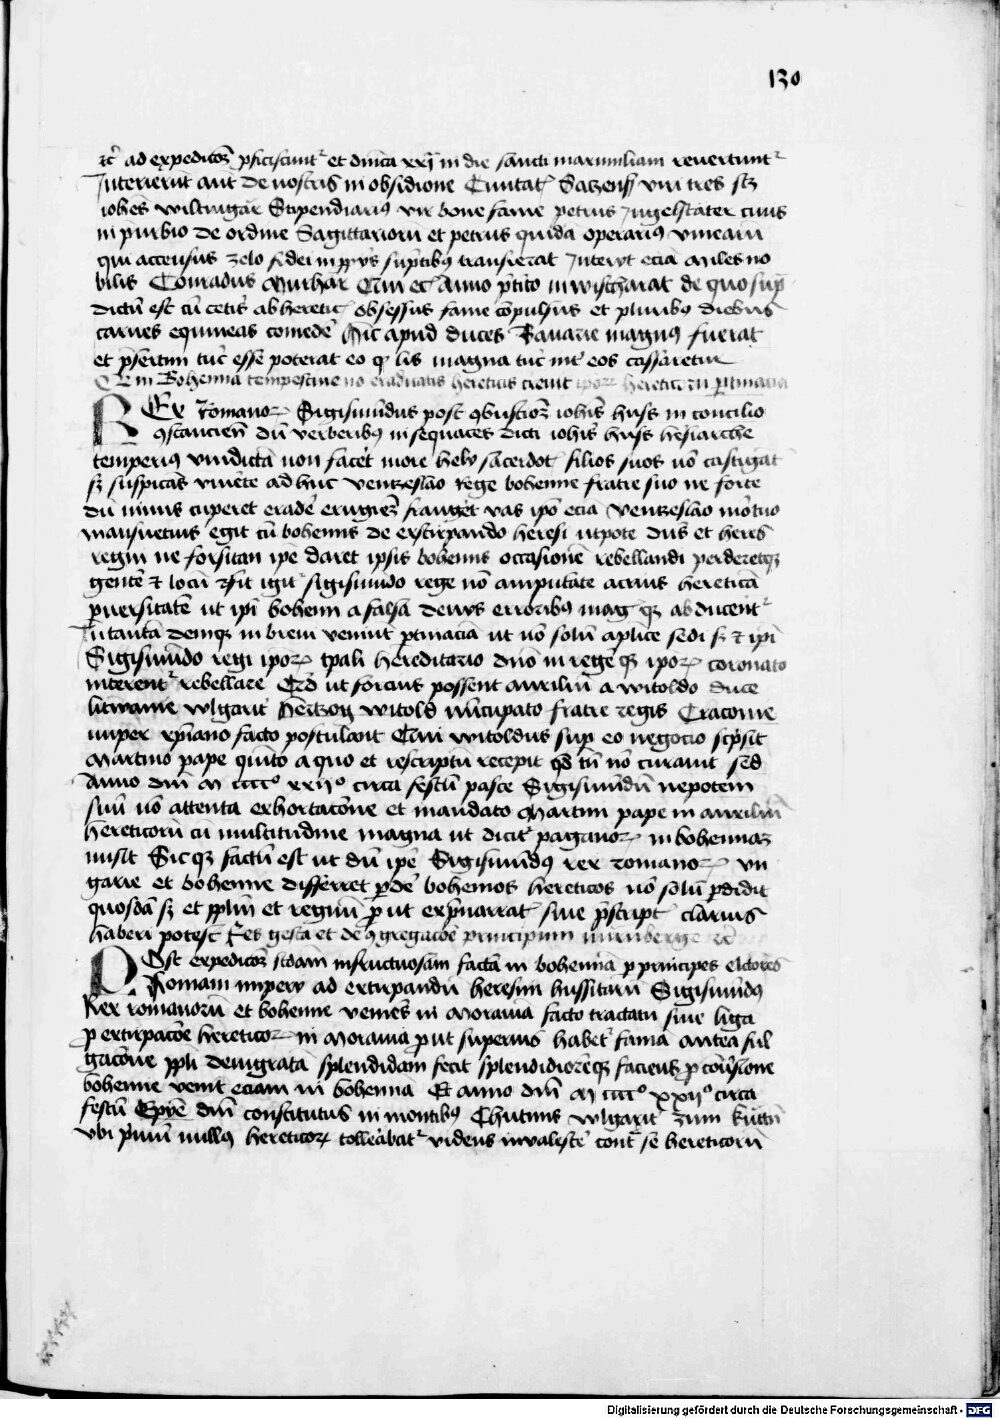 130
ad expedicõȝ pficiscunt᷑ et dm̃ica xxij in die sancti maximiliani revertunt᷑
Interierũt aũt de nostris in obsidione Civitat Satzenß viri tres scȝ
ioh̃es wiltingär Stipendiariꝰ vir bone fame petrus Ingelsteter civis
in p̃urbio de ordine Sagittariorũ et petrus quidã operariꝰ vineaꝝ
qui accensus zelo fidei in pp̃ijs sũptibꝰ transierat Interijt eciã miles no
bilis Conradus Anno p̃tito in wischärat de quo sup̃
dictũ est cũ ceteris ab heretic̃ obsessus fame cõpulsus et pluribꝰ diebus
carnes equineas comedẽ Hic apud duces Bavarie magnus fuerat
et p̃sertim tũc esse poterat eo ꝙ lis magna tũc int̃ eos cassaretur
in Bohemia tempestive nõ eradicatis hereticis crevit ipoꝝ hereticorũ ptinacia
REx Romanoꝝ Sigismundus post ꝯbustiõȝ ioh̃is huss in concilio
ꝯstancieñ dũ verberibꝰ in sequaces dicti ioh̃is huss hesiarche
temperiꝰ vindictã non facet more hely sacerdot filios suos nõ castigãt
sȝ suspicãs vivẽte ad huc wentzeslao rege bohemie fratre suo ne forte
dũ nimis cuperet eradẽ erugiez franget vas ip̃o eciã wentzeslao mõtuo
mansuetius egit cũ bohemis de exstirpando heresi utpote dñs et heres
regni ne forsitan ip̃e daret ipsis bohemis occasionẽ rebellandi perderetqȝ
gentẽ et locũ igit sigismũdo rege nõ amputãte acrius hereticã
p̱versitatẽ ut ip̃i bohemi a falsã devijs erroribꝰ magisqȝ abducent᷑
In tantã demqȝ in brevi venint ptinaciã ut nõ solũ ap̃lice sedi sȝ et ip̃i
Sigismũdo regi ipoꝝ tp̃ali hereditario dño in regẽqȝ ipoꝝ coronato
niterent᷑ rebellare Et ut forcius possent auxiliũ a witoldo duce
litwanie wlgarit̃ Hertzog witold nũcupato fratre regis Cracovie
nuper xp̃iano facto postulant Cui witoldus sup eo negocio scp̃sit
Martino pape quĩto a quo et rescriptũ recepit qd̃ tñ nõ curavit sed
Anno dñi M cccc° xxii° circa festũ pasce Sigismundũ nepotem
suũ nõ attenta exhortacõne et mandato Martini pape in auxiliũ
hereticorũ cũ multitudine magna ut dicit᷑ paganoꝝ in bohemiaȝ
misit Sicqȝ factũ est ut dũ ip̃e Sigismũdꝰ rex romanoꝝ un
garie et bohemie differret p̱dẽ bohemos hereticos nõ solũ p̱didit
quosdã sȝ et pp̃lm̃ et regnũ ꝓut exp̃narrat sive p̃script clarius
haberi potest Res gesta et de ꝯgregacõe principum nurnberge
POst expedicõȝ scd̃am infructuosam factã in bohemia ꝑ principes elctores
Romani imperij ad extirpandũ heresim hussitarũ Sigismũdꝰ
Rex romanorũ et bohemie veniẽs in moraviã facto tractatu sive liga
ꝓ extirpacõe hereticoꝝ in moravia ꝓut superius habet᷑ famã antea ful
gacõne pp̃li denigratã splendidam fecit splendidiorẽqȝ faciens ꝓ cõv̾sione
bohemie venit eciam in bohemia Et anno dñi M cccc° xxii° circa
festũ Epyẽ dñi constitutus in montibꝰ Chutnis wlgarit̃ zum kuttñ
vbi p̃mũ nullꝰ hereticoꝝ tolleabat᷑ videns invalescẽ cont̃ se hereticorũ
Digitalisierung gefördert durch die Deutsche Forschungsgemeinschaft - DFG